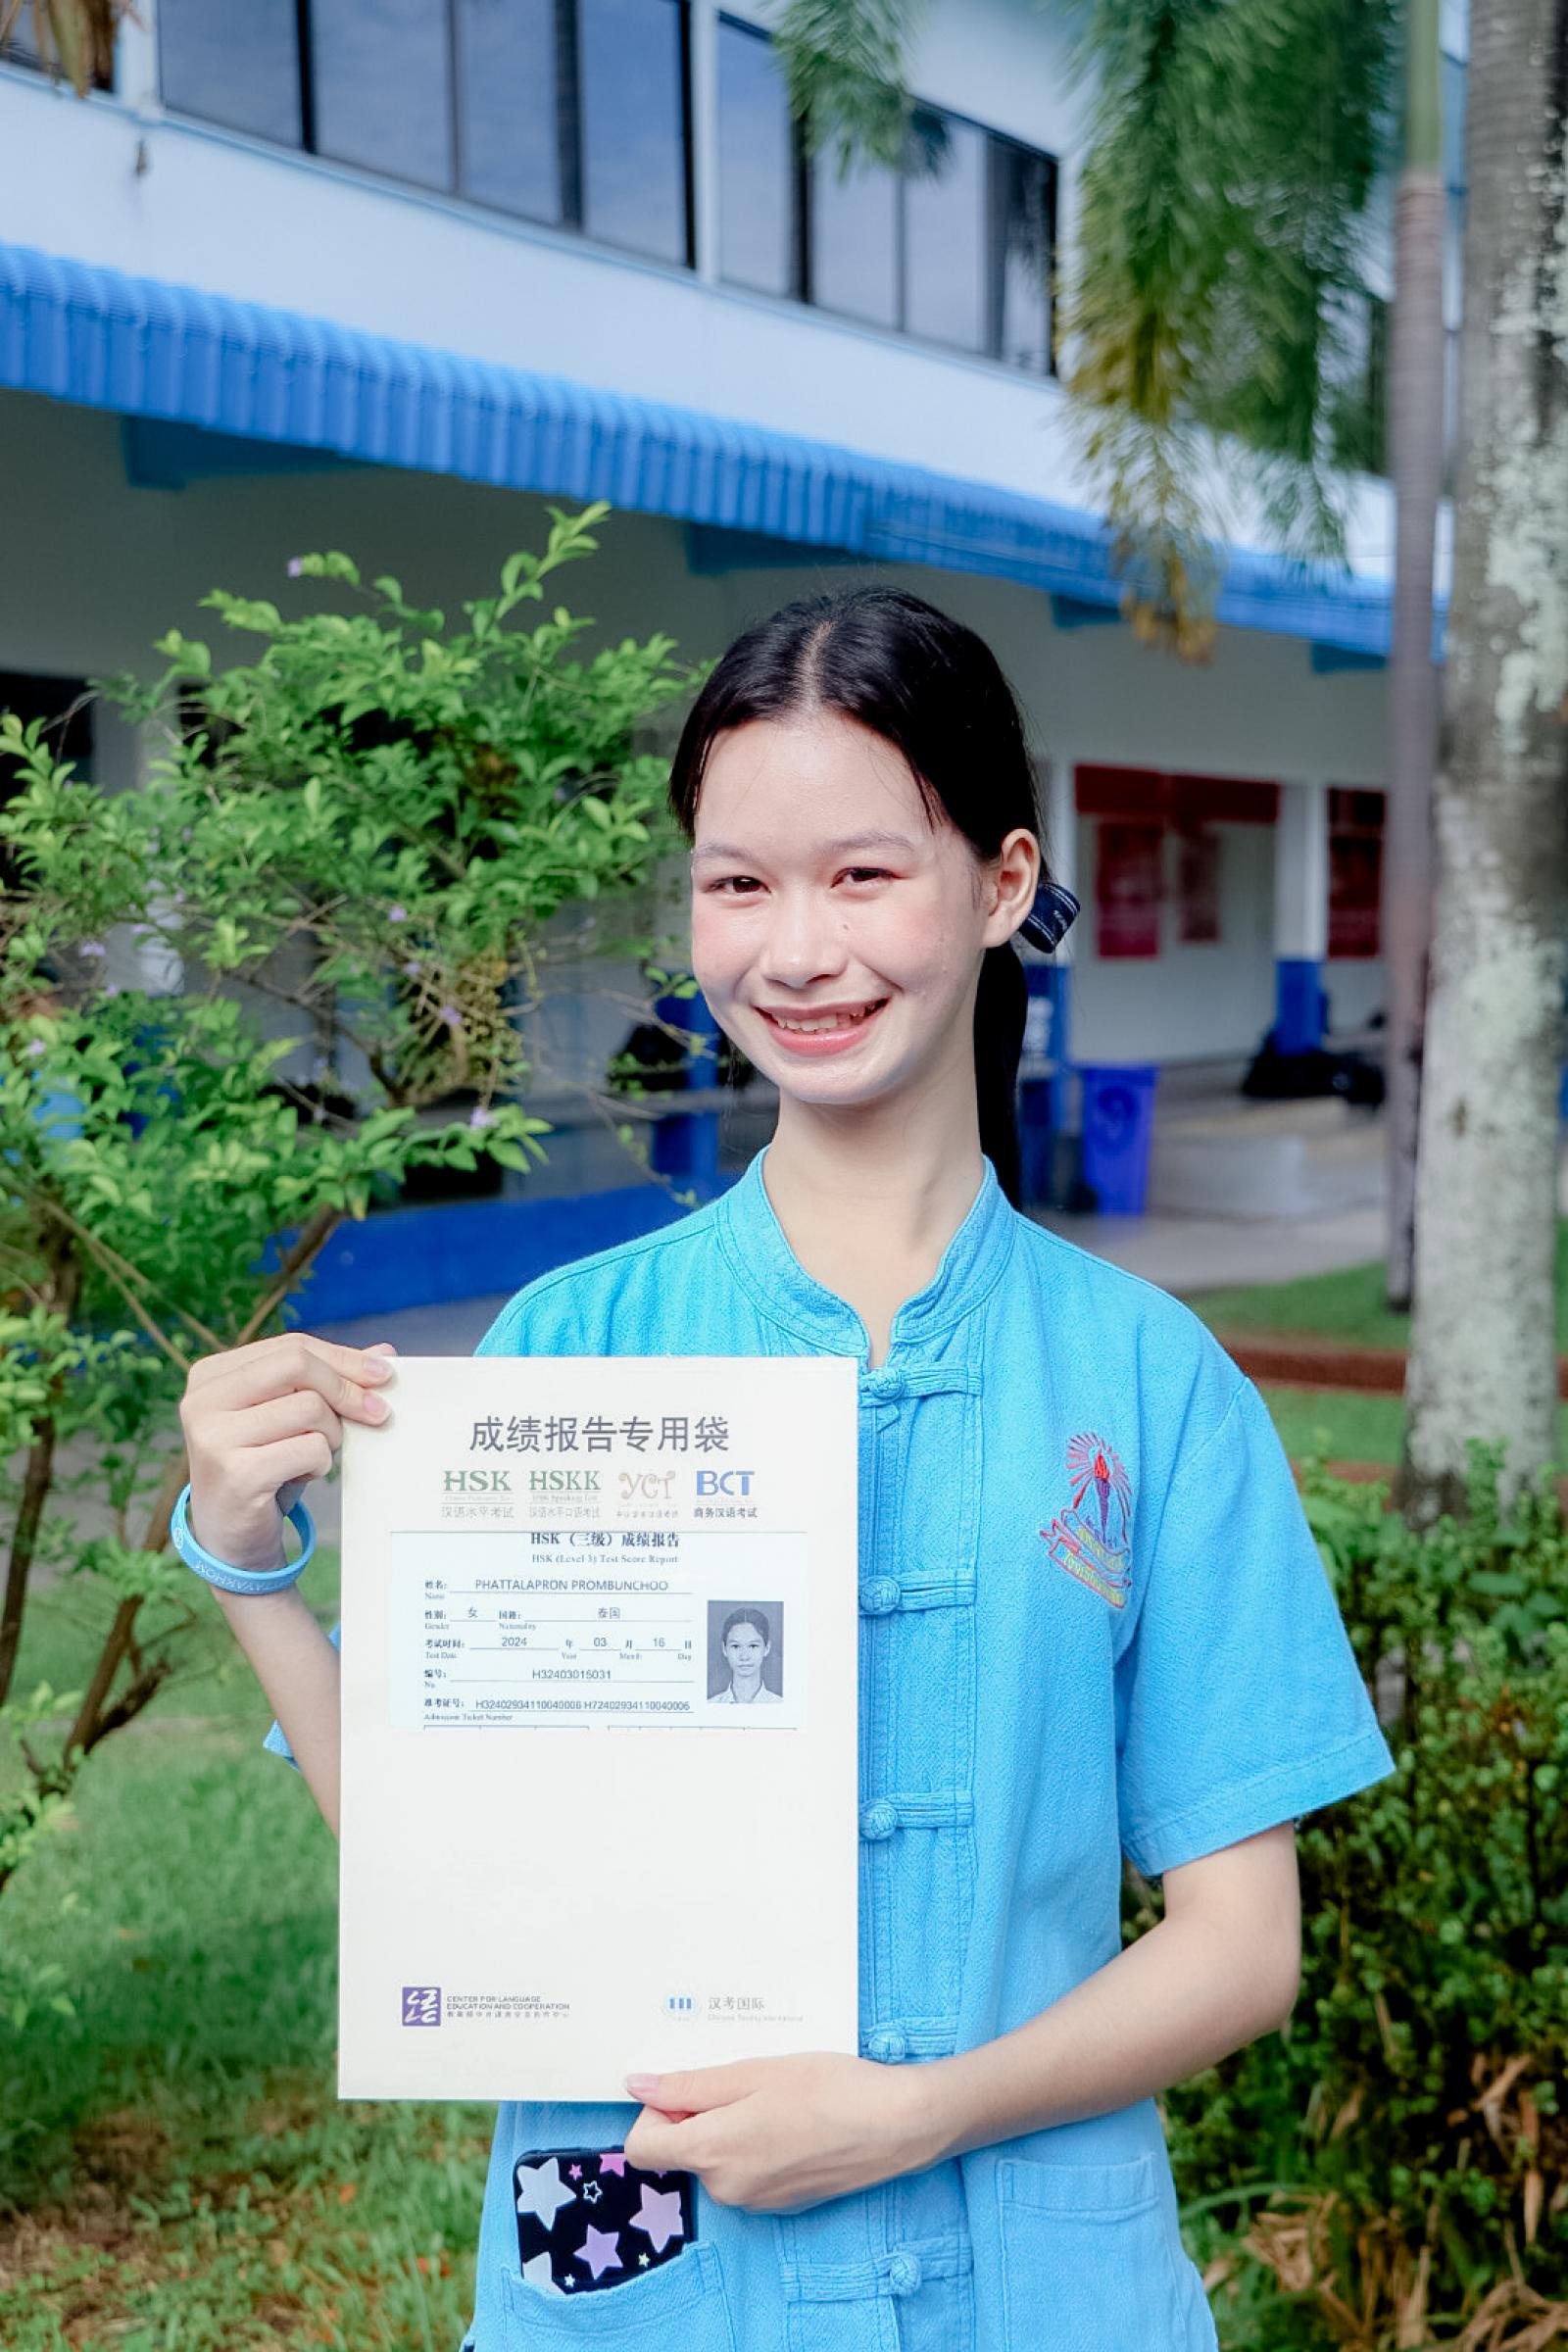 成绩报告专用袋
HSK HSKK YCT BCT
汉语水平考试 汉语水平口语考试 商务汉语考试
HSK（三级）成绩报告
HSK (Level 3) Test Score Report
姓名： PHATTALAPRON PROMBUNCHOO
Name
性别： 女 国籍： 泰国
Gender Nationality
考试时间： 2024 年 03 月 16 日
Test Date Year Month Day
编号： H32403015031
No.
准考证号： H32402934110040006 H72402934110040006
Admission Ticket Number
CENTER FOR LANGUAGE
EDUCATION AND COOPERATION
汉考国际
Chinese Testing International